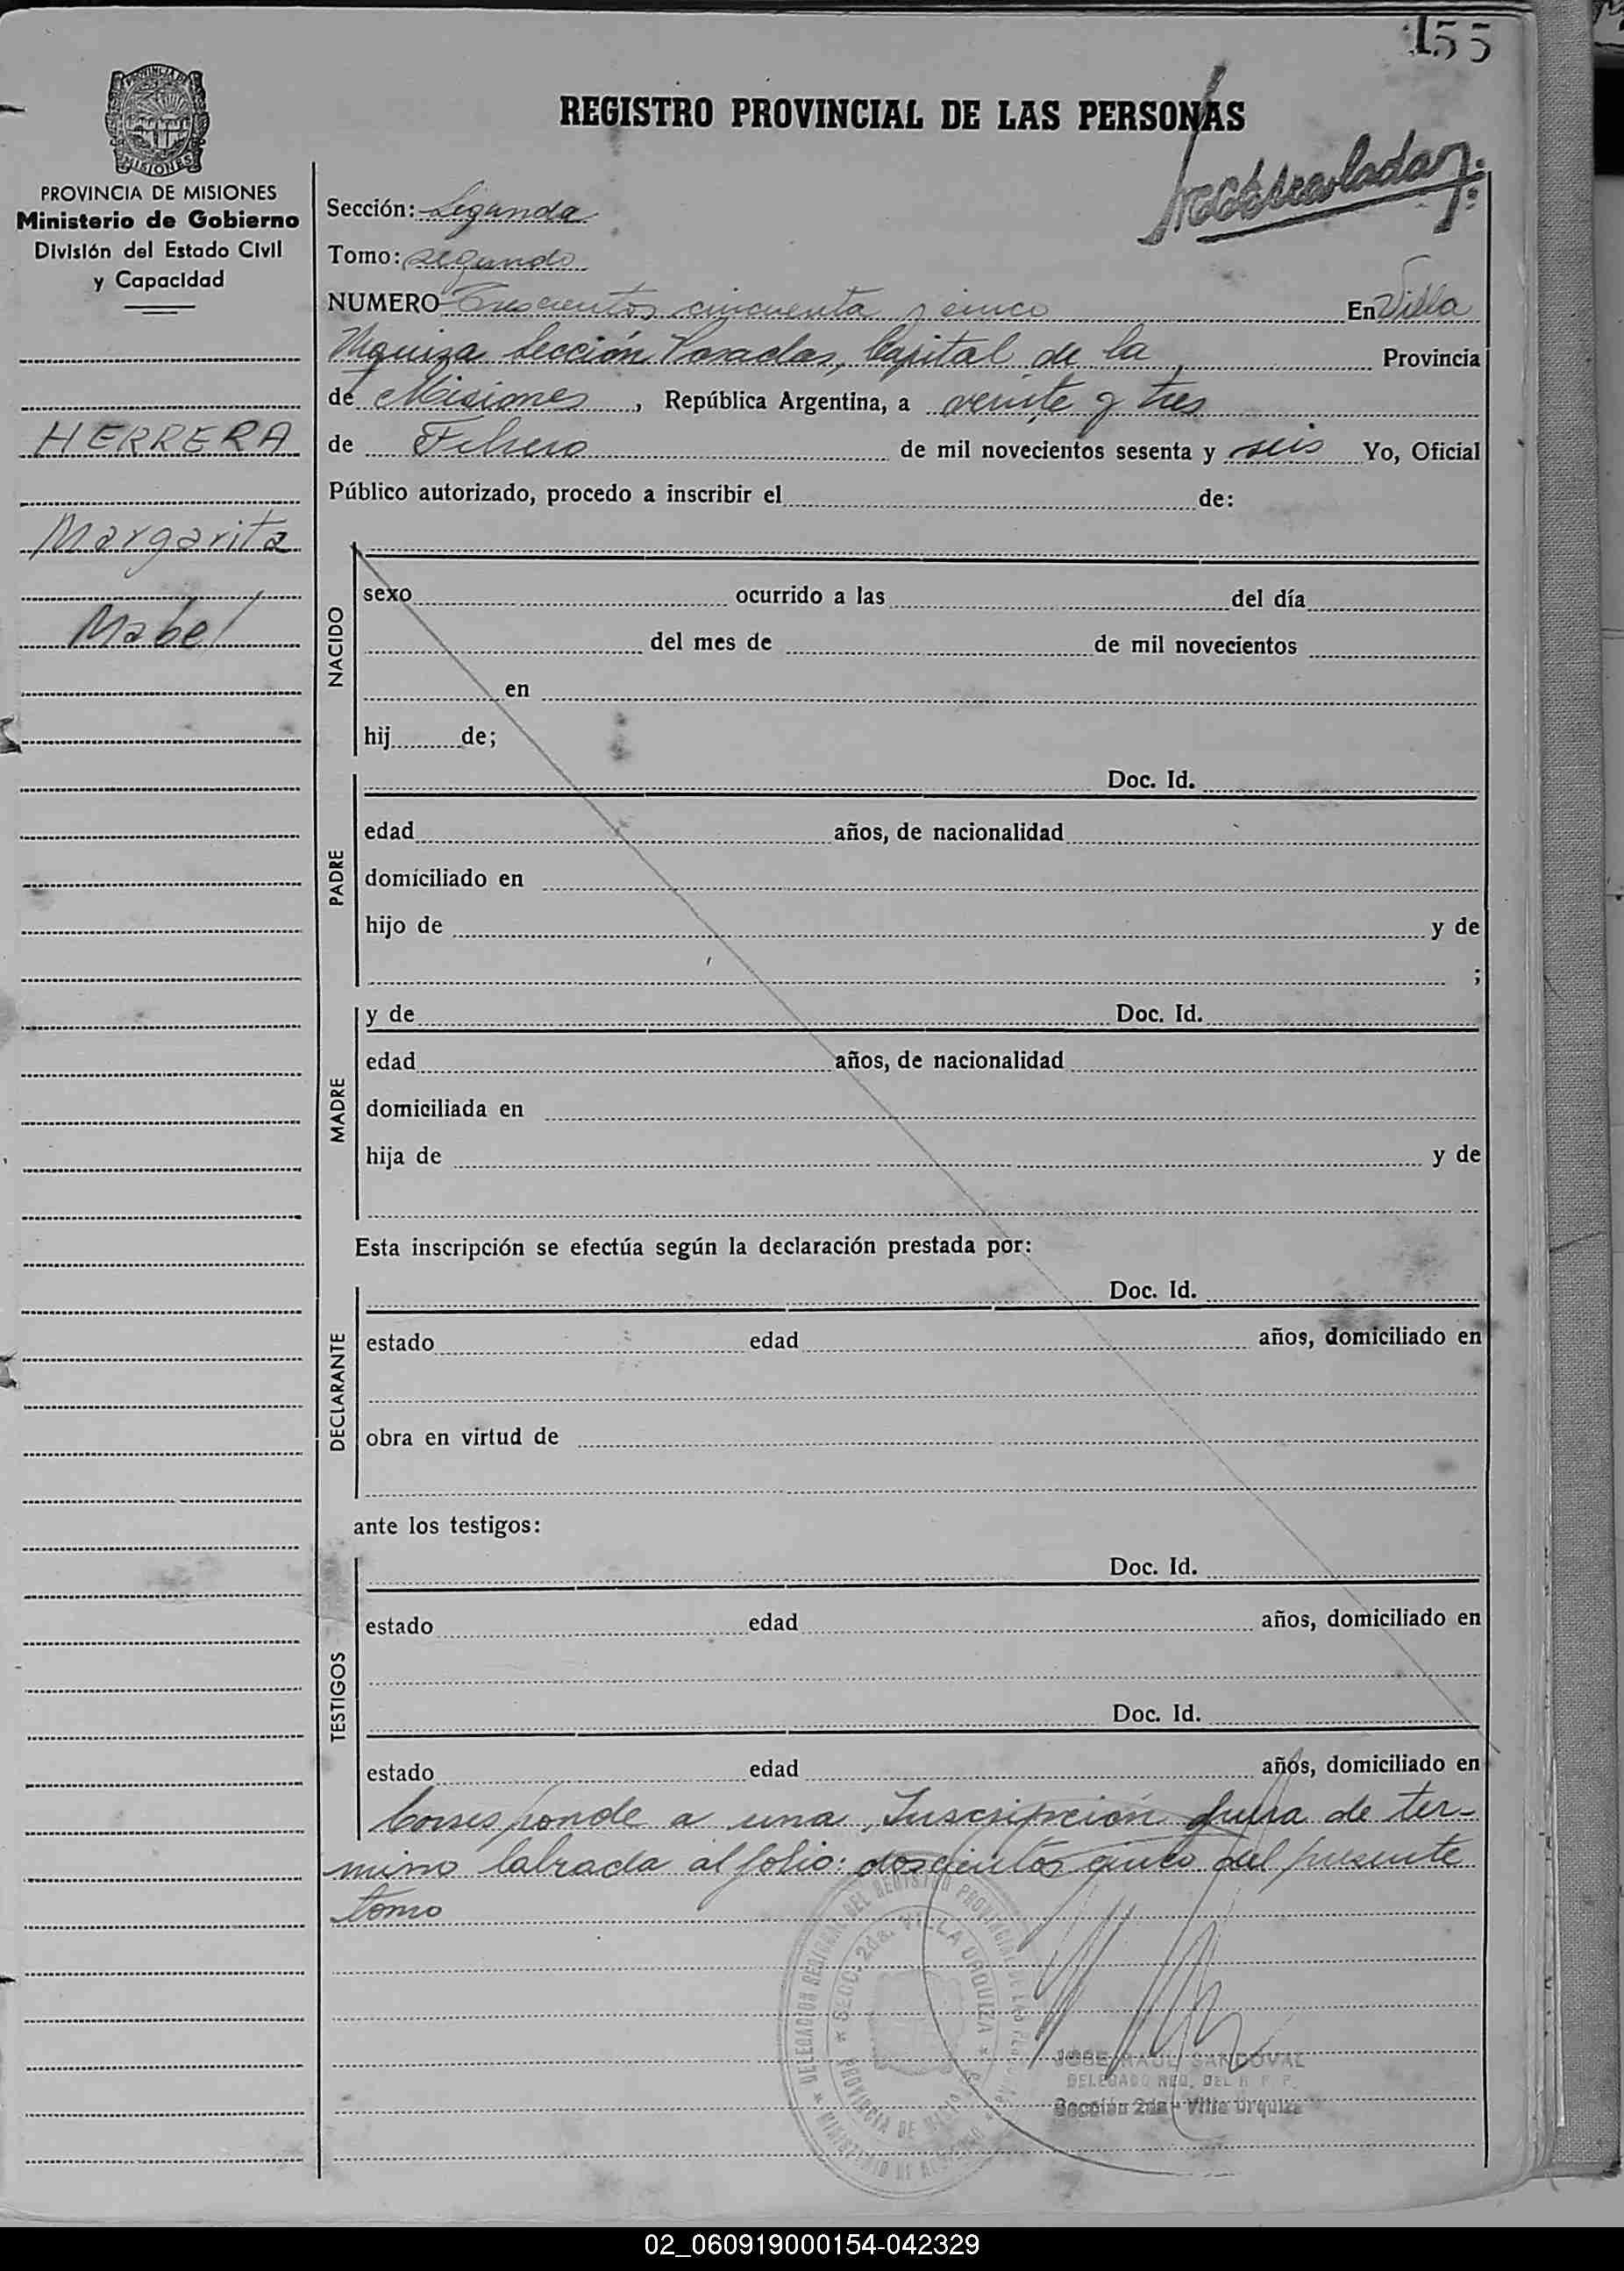 155
REGISTRO PROVINCIAL DE LAS PERSONAS
PROVINCIA DE
MISIONES
PROVINCIA DE MISIONES
Ministerio de Gobierno
División del Estado Civil
y Capacidad
HERRERA
Margarita
Mabel
Sección: Segunda
Tomo: segundo
NUMERO Trescientos cincuenta y cinco En Villa
Urquiza Sección Posadas, Capital de la Provincia
de Misiones, República Argentina, a veinte y tres
de Febrero de mil novecientos sesenta y seis Yo, Oficial
Público autorizado, procedo a inscribir el de:
NACIDO
sexo ocurrido a las del día
del mes de de mil novecientos
en
hij de;
PADRE
Doc. Id.
edad años, de nacionalidad
domiciliado en
hijo de y de
;
MADRE
y de Doc. Id.
edad años, de nacionalidad
domiciliada en
hija de y de
Esta inscripción se efectúa según la declaración prestada por:
DECLARANTE
Doc. Id.
estado edad años, domiciliado en
obra en virtud de
ante los testigos:
TESTIGOS
Doc. Id.
estado edad años, domiciliado en
Doc. Id.
estado edad años, domiciliado en
Corresponde a una Inscripción fuera de ter-
mino labrada al folio: doscientos cinco del presente
tomo
DELEGACION REGIONAL DEL REGISTRO PROVINCIAL DE LAS
SECC. 2da. VILLA URQUIZA
PROVINCIA DE
MINISTERIO DE
JOSE RAUL SANDOVAL
DELEGADO REG. DEL R. P. P.
Sección 2da - Villa Urquiza
02_060919000154-042329